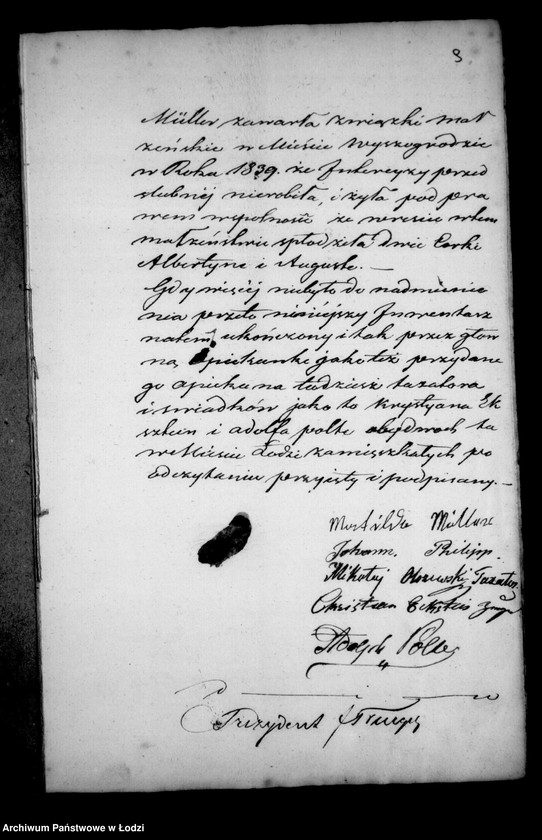 3
Müller zawarła związki mał
żeńskie w Mieście Wyszogrodzie
w Roku 1839. że Intercyzy przed
ślubnej nierobiła, i żyła pod pra
wem wspólności że wreście w tem
małżeństwie spłodziła dwie Corki
Albertynę i Augustę. —
Gdy więcej niebyło do nadmienie
nia przeto niniejszy Inwentarz
na tem ukończony i tak przez głow
ną Opiekunkę jako też przydane
go opiekuna tudzież taxatora
i świadków jako to Krystyana Ek
sztein i Adolfa Polte obydwoch tu
w Mieście Łodzi zamieszkałych po
odczytaniu przyięty i podpisany. —
Matilda Müller
Johann Philipp.
Mikołaj Olszewski Taxator
Christian Eckstein
Adolph Polte
Prezydent
Archiwum Państwowe w Łodzi